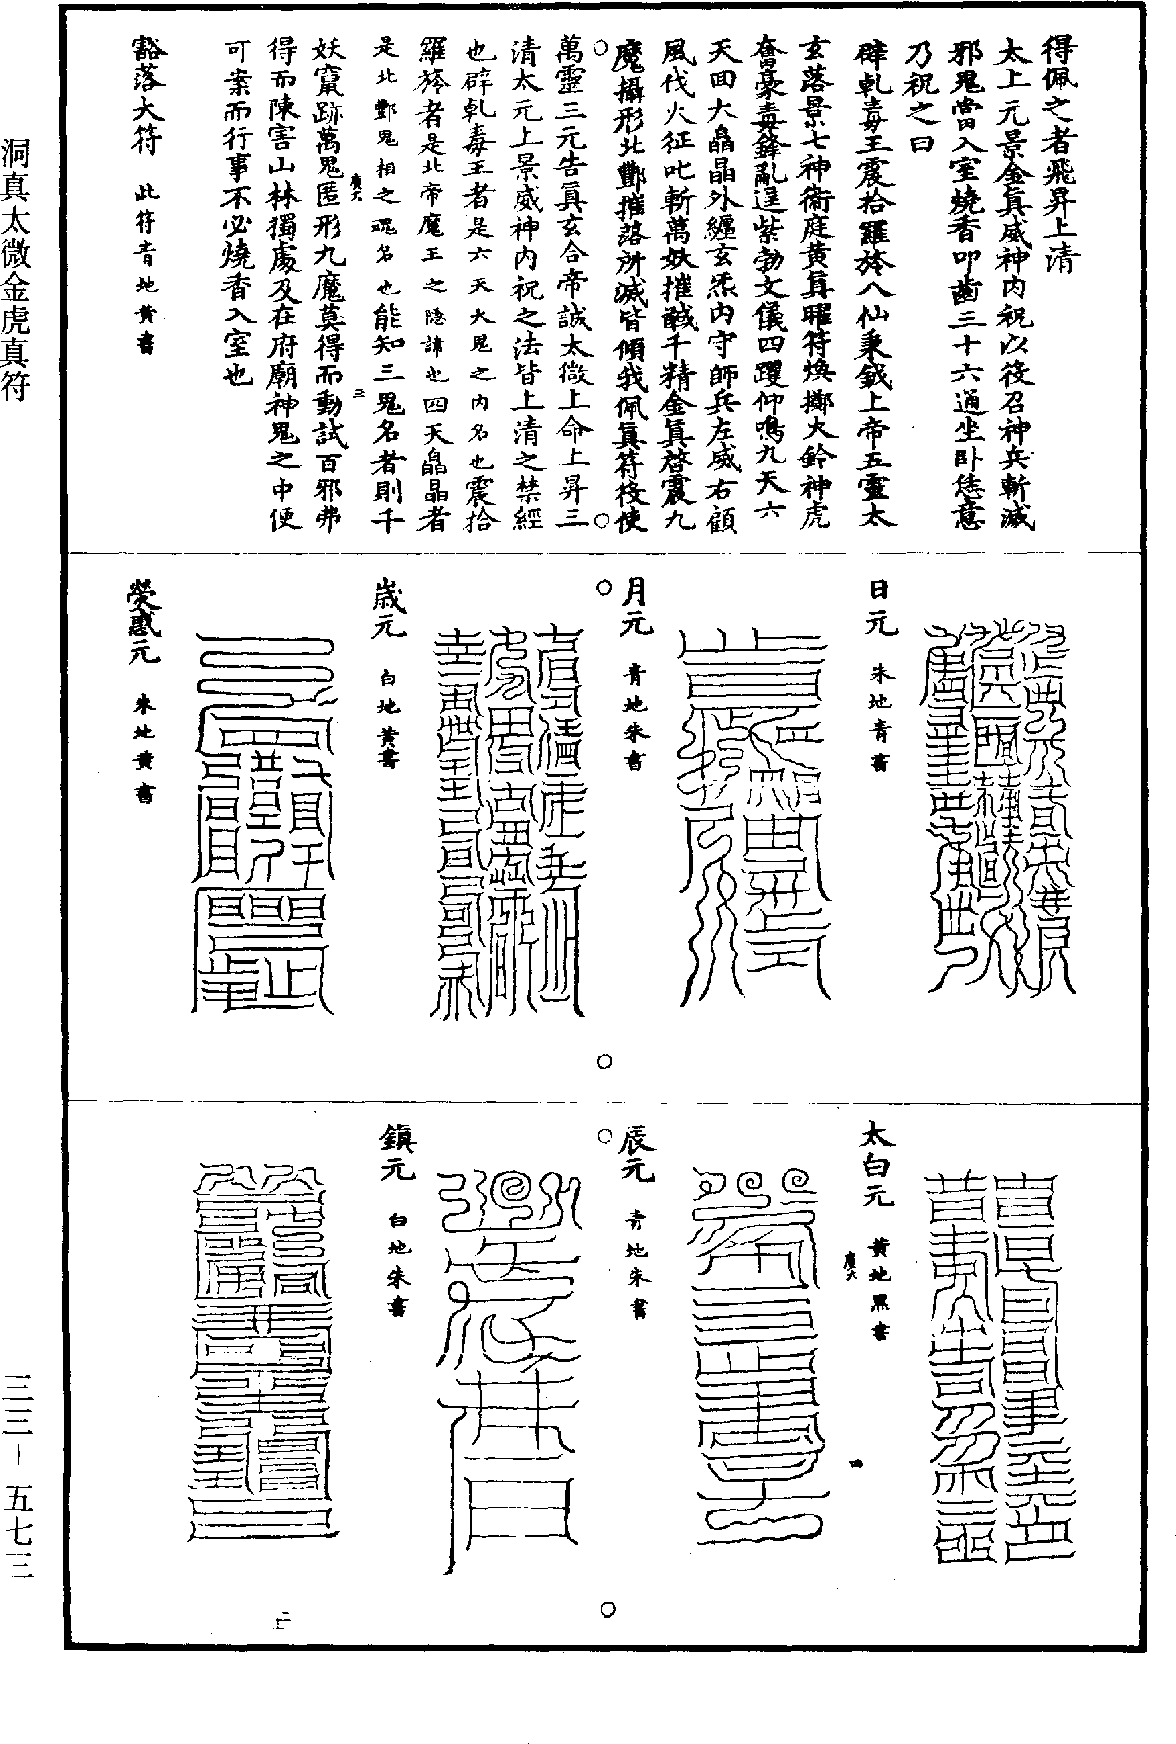 得佩之者飛昇上清
太上元景金真威神內祝以筏召神兵斬滅
邪鬼當入室燒香叩齒三十六通坐卧恁意
乃祝之曰
辟軋毒王震拾羅於八仙秉鉞上帝五靈太
玄落景七神衛庭黃真曜符煥擲火鈴神虎
奮豪毒鋒亂逞紫勃文儀四躍仰鳴九天六
天回大皛晶外纏玄炁內守師兵左威右顧
風伐火征叱斬萬妖摧馘千精金真啓震九
魔攝形北酆摧落所滅皆傾我佩真符役使
萬靈三元告真玄合帝誠太微上命上昇三
清太元上景威神內祝之法皆上清之禁經
也辟軋毒王者是六天大鬼之內名也震拾
羅於者是北帝魔王之隱諱也四天皛晶者
是北酆鬼相之魂名也能知三鬼名者則千
妖竄跡萬鬼匿形九魔莫得而動試百邪弗
得而陳害山林獨處及在府廟神鬼之中便
可案而行事不必燒香入室也
豁落大符 此符青地黃書
日元 朱地青書
月元 青地朱書
歲元 白地黃書
熒惑元 朱地黃書
太白元 黃地黑書
辰元 青地朱書
鎮元 白地朱書
洞真太微金虎真符
三三－五七三